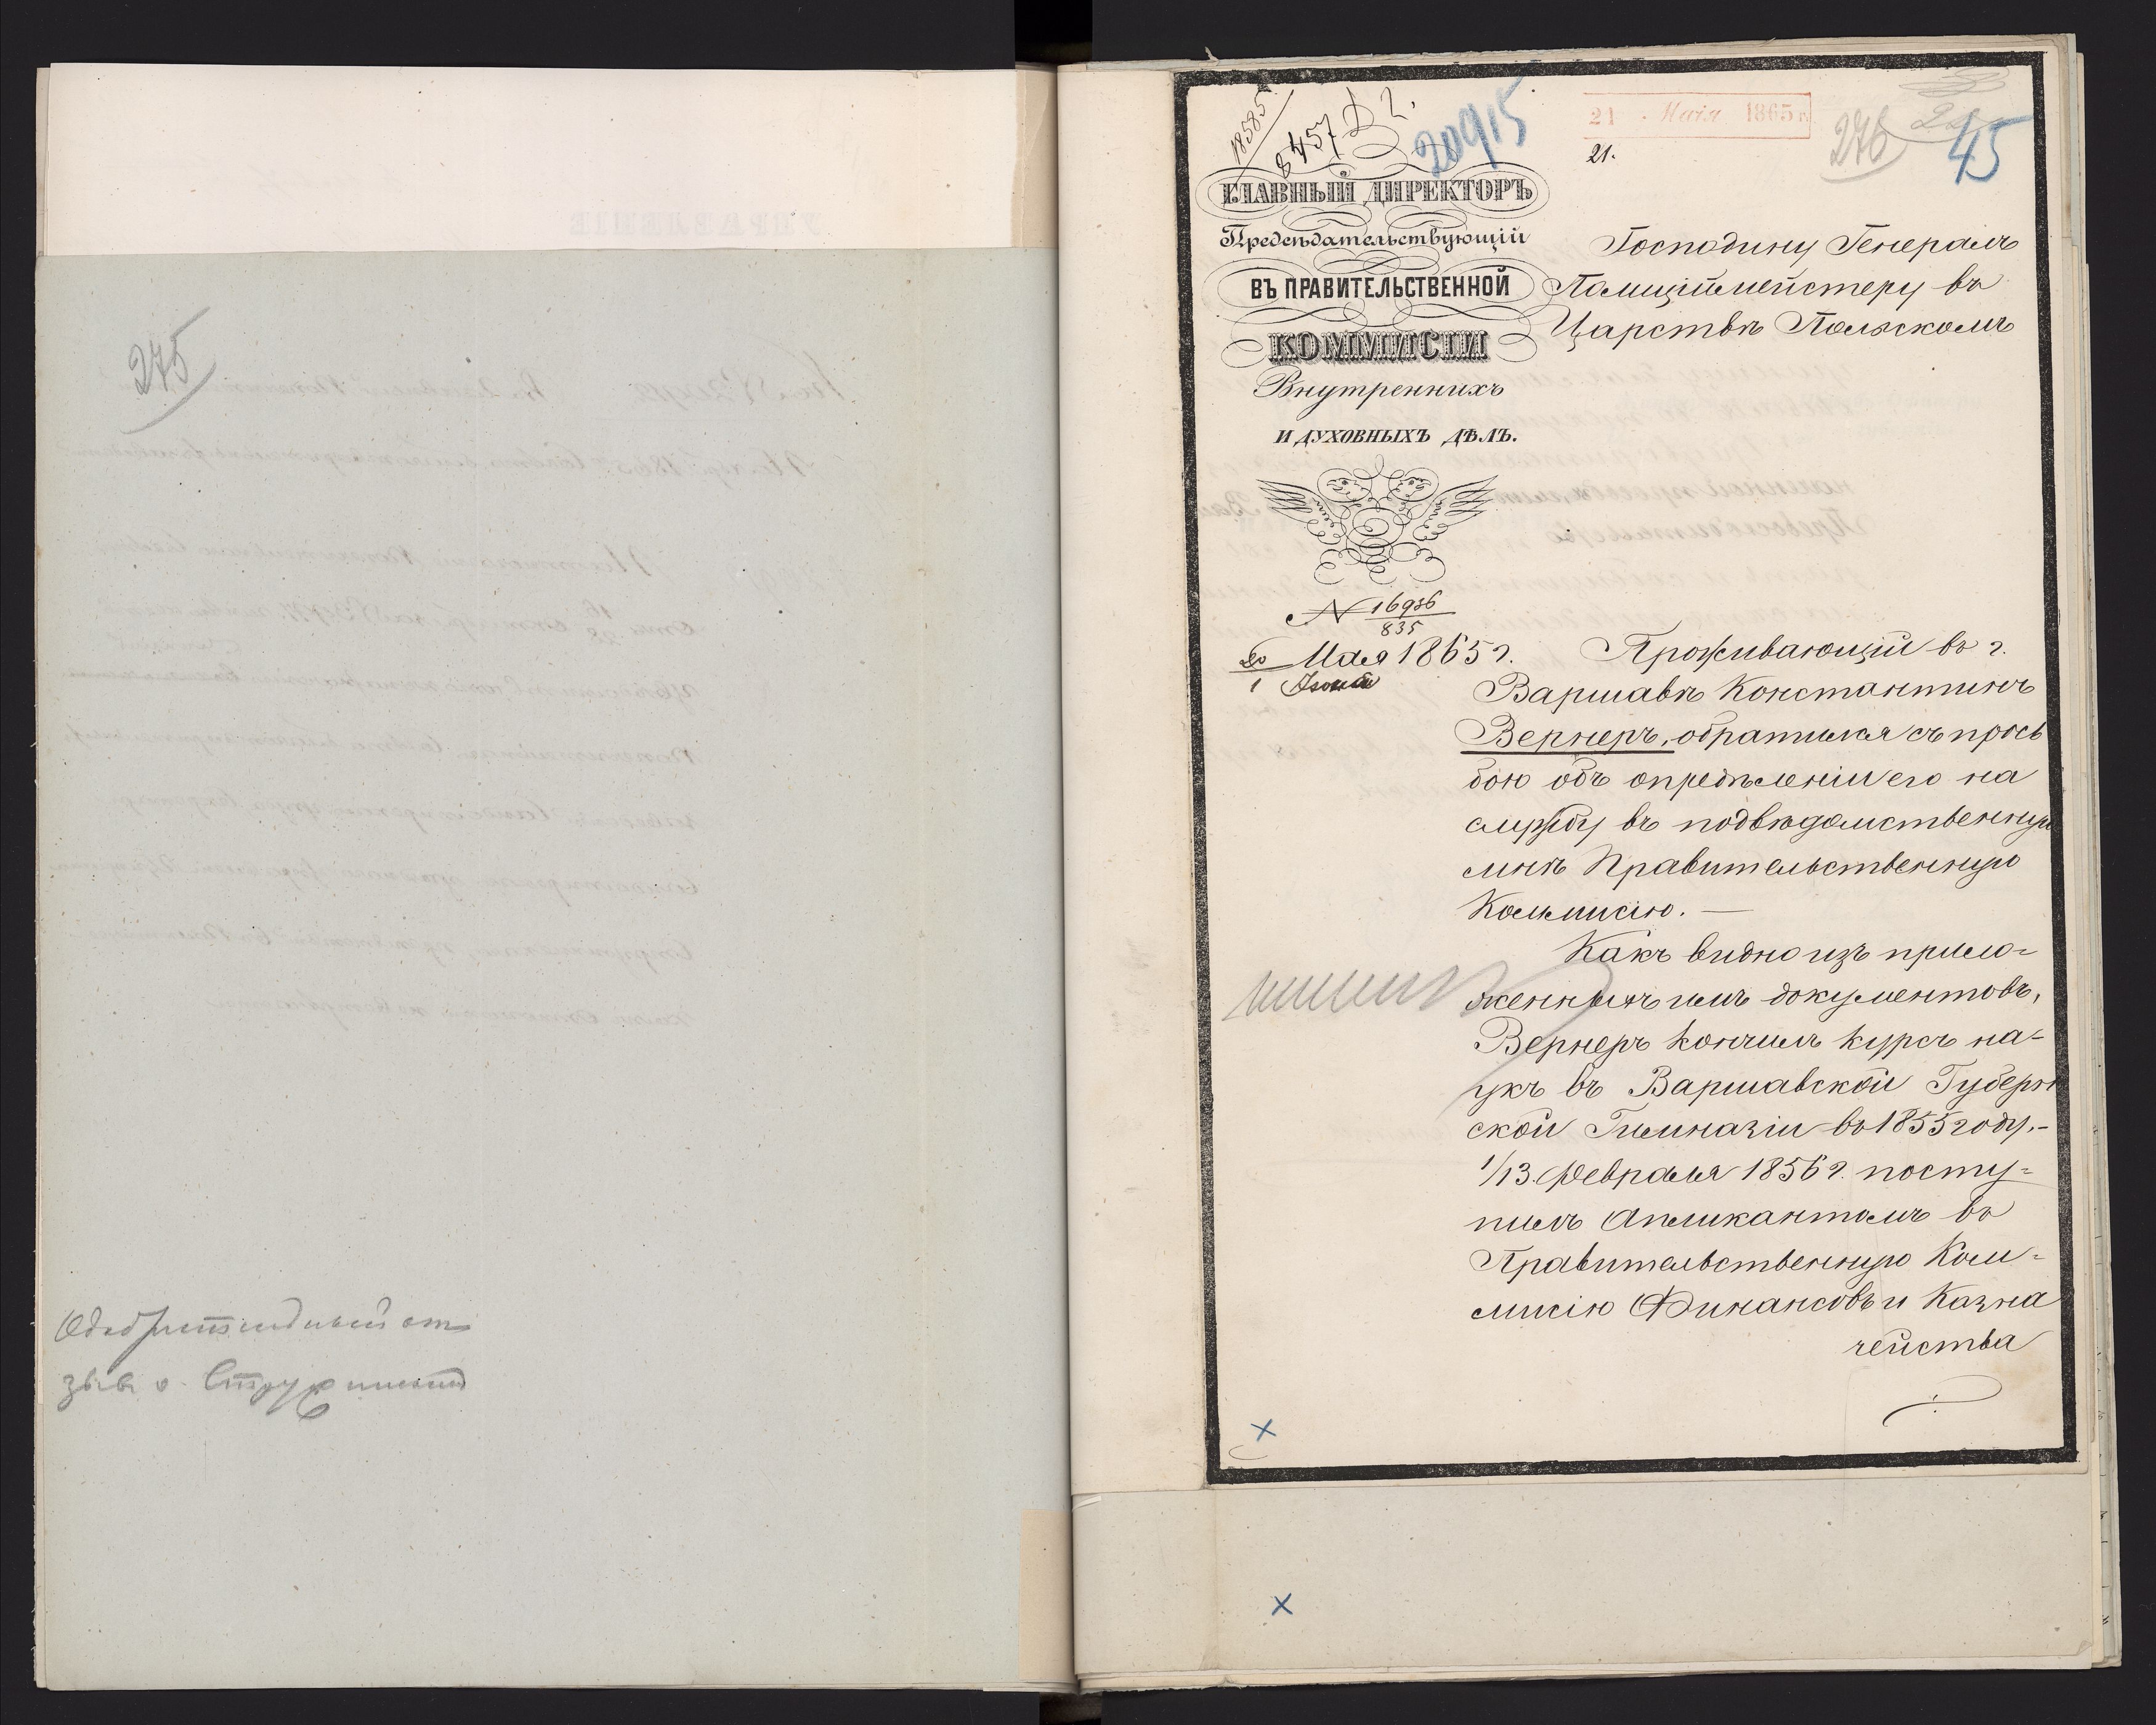 275
зывъ о
18585
8457
20915
21 Маiя 1865 г.
21.
276
45
ГЛАВНЫЙ ДИРЕКТОРЪ
Предсѣдательствующiй
ВЪ ПРАВИТЕЛЬСТВЕННОЙ
КОММИСIИ
Внутреннихъ
И ДУХОВНЫХЪ ДѢЛЪ.
Господину Генералъ
Полицiймейстеру въ
Царствѣ Польскомъ
№ 16936
835
20 Мая 1865 г.
1 Iюня
Проживающiй въ г.
Варшавѣ Константинъ
Вернеръ, обратился съ прось
бою объ опредѣленiи его на
службу въ подвѣдомственную
мнѣ Правительственную
Коммисiю. —
Какъ видно изъ прило=
женныхъ имъ документовъ,
Вернеръ кончилъ курсъ на=
укъ въ Варшавской Губерн
ской Гимназiи въ 1855 году.-
1/13. Февраля 1856 г. посту=
пилъ Аппликантомъ въ
Правительственную Ком=
мисiю Финансовъ и Казна
чейства
x
x